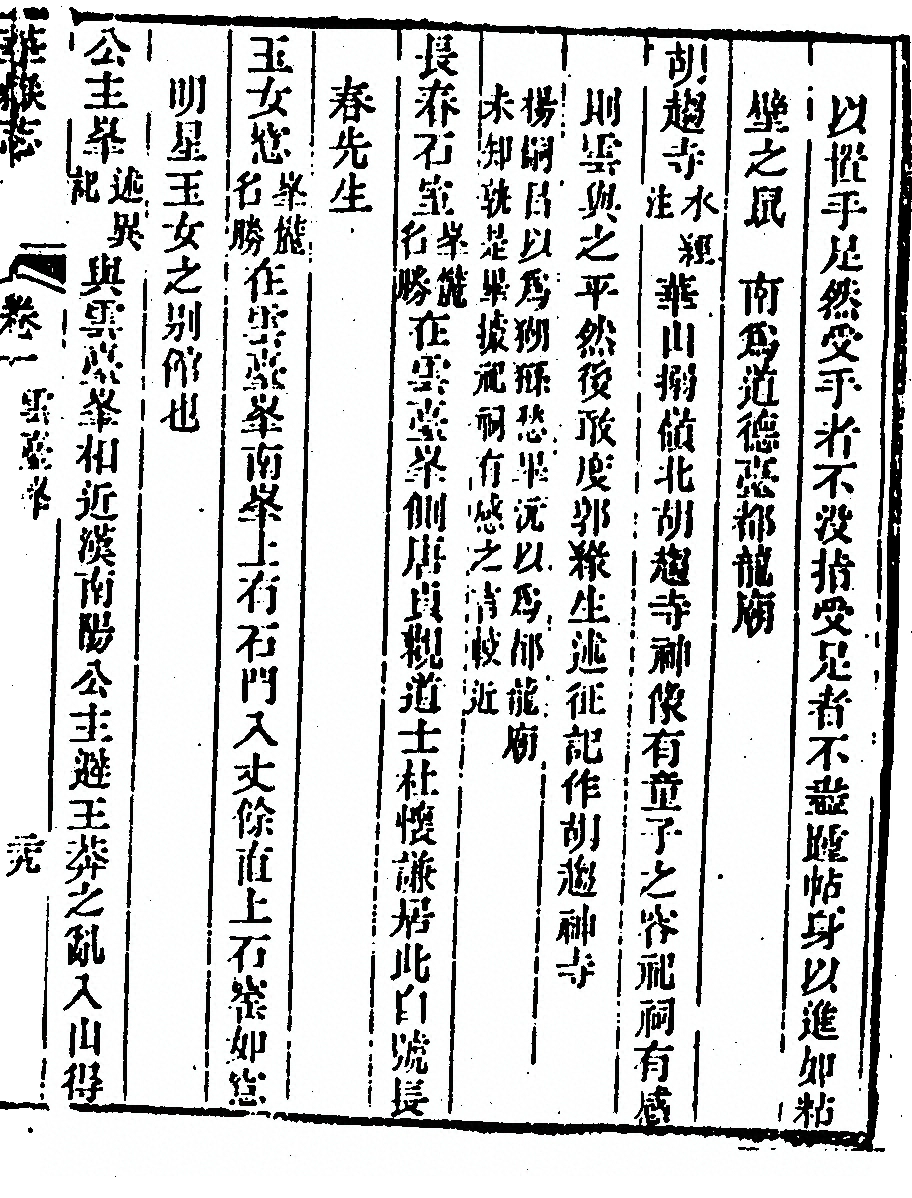 以惜手足然受手者不没指受足者不盡踵帖身以進如粘
壁之鼠　南爲道德臺都龍廟
胡趨寺水經注華山搦嶺北胡趨寺神像有童子之容祀祠有感
則雲與之平然後敢度郭緣生述征記作胡趨神寺
楊嗣昌以爲猢猻恐畢沅以爲都龍廟
未知孰是畢據祀祠有感之情較近
長春石室名勝在雲臺峯側唐貞觀道士杜懷謙居此自號長
春先生
玉女窓名勝在雲臺峯南峯上有石門入丈餘直上石崟如窓
明星玉女之别館也
公主峯述異記與雲臺峯相近漢南陽公主避王莽之亂入山得
華嶽志
卷一　雲臺峯